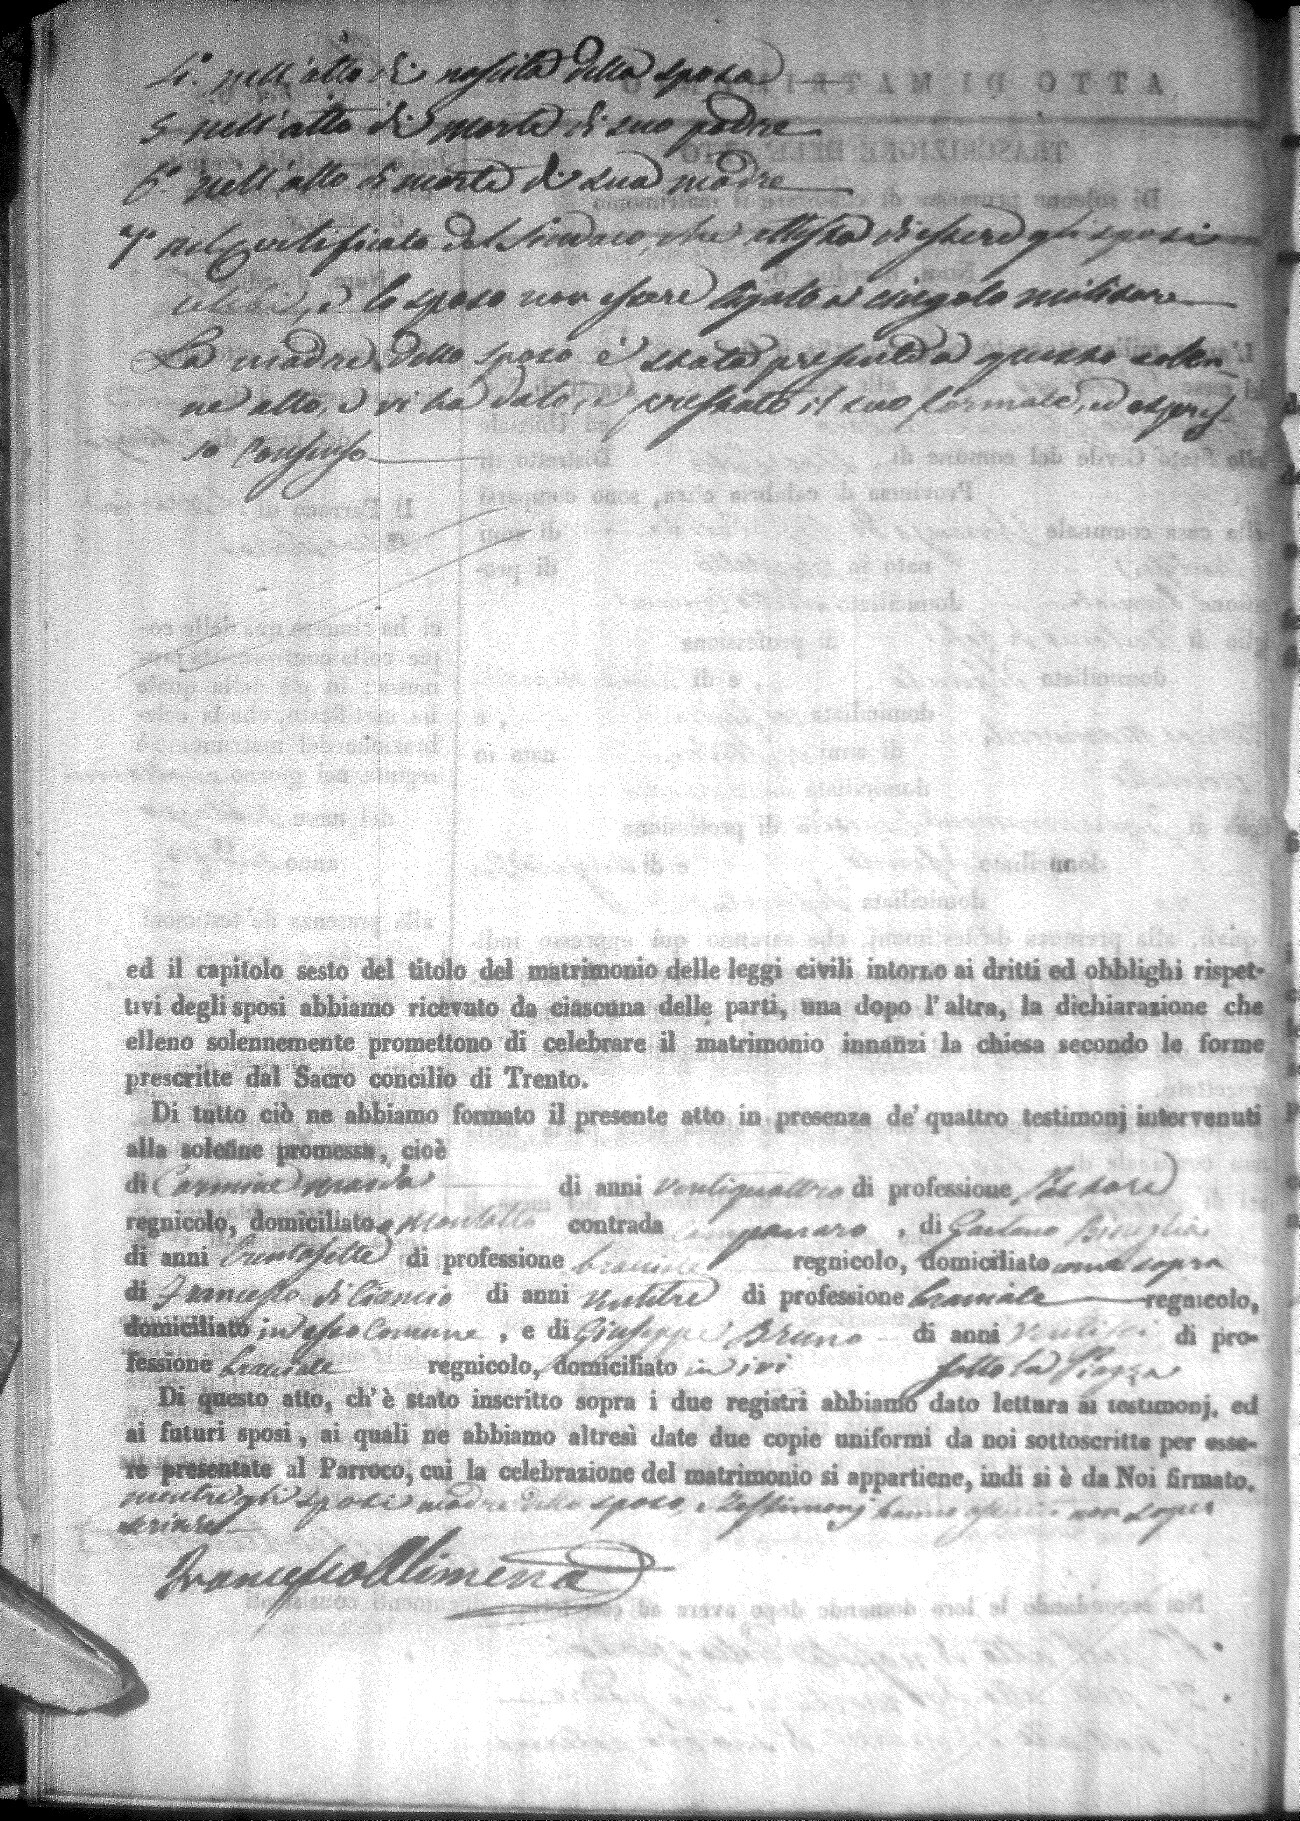 4.° nell'atto di nascita della sposa
5 nell'atto di morte di suo padre
6° nell'atto di morte di sua madre
7° nel certificato del Sindaco, che attesta di essere gli sposi
celibi, e lo sposo non essere ligato a cingolo militare
La madre dello sposo è stata presente a questo solen-
ne atto, e vi ha dato, e prestato il suo formale, ed espres-
so Consenso
ed il capitolo sesto del titolo del matrimonio delle leggi civili intorno ai dritti ed obblighi rispet-
tivi degli sposi abbiamo ricevuto da ciascuna delle parti, una dopo l'altra, la dichiarazione che
elleno solennemente promettono di celebrare il matrimonio innanzi la chiesa secondo le forme
prescritte dal Sacro concilio di Trento.
Di tutto ciò ne abbiamo formato il presente atto in presenza de' quattro testimonj intervenuti
alla solenne promessa, cioè
di Carmine di anni ventiquattro di professione
regnicolo, domiciliato Montalto contrada , di Gaetano
di anni Trentasette di professione bracciale regnicolo, domiciliato come sopra
di Francesco di Ciancio di anni ventitre di professione bracciale regnicolo,
domiciliato in esso Comune , e di Giuseppe Bruno di anni di pro-
fessione bracciale regnicolo, domiciliato in ivi sotto la Piazza
Di questo atto, ch'è stato inscritto sopra i due registri abbiamo dato lettura ai testimonj, ed
ai futuri sposi, ai quali ne abbiamo altresì date due copie uniformi da noi sottoscritte per esse-
re presentate al Parroco, cui la celebrazione del matrimonio si appartiene, indi si è da Noi firmato.
mentre gli sposi madre dello sposo, e Testimonj hanno non saper
scrivere
Francesco Alimena